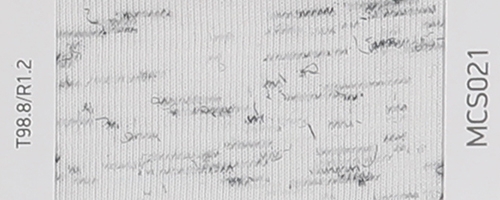 T98.8/R1.2
MCS021